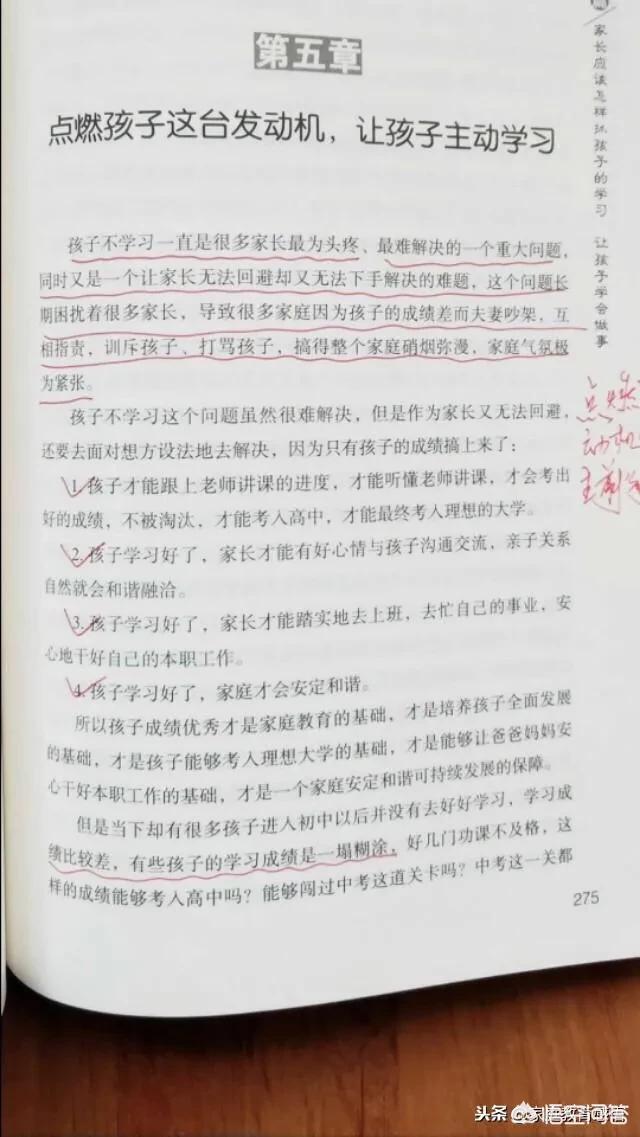 第五章
点燃孩子这台发动机，让孩子主动学习
家长应该怎样抓孩子的学习 让孩子学会做事
孩子不学习一直是很多家长最为头疼、最难解决的一个重大问题，
同时又是一个让家长无法回避却又无法下手解决的难题，这个问题长
期困扰着很多家长，导致很多家庭因为孩子的成绩差而夫妻吵架，互
相指责，训斥孩子、打骂孩子，搞得整个家庭硝烟弥漫，家庭气氛极
为紧张。
孩子不学习这个问题虽然很难解决，但是作为家长又无法回避，
还要去面对想方设法地去解决，因为只有孩子的成绩搞上来了：
1.孩子才能跟上老师讲课的进度，才能听懂老师讲课，才会考出
好的成绩，不被淘汰，才能考入高中，才能最终考入理想的大学。
2.孩子学习好了，家长才能有好心情与孩子沟通交流，亲子关系
自然就会和谐融洽。
3.孩子学习好了，家长才能踏实地去上班，去忙自己的事业，安
心地干好自己的本职工作。
4.孩子学习好了，家庭才会安定和谐。
所以孩子成绩优秀才是家庭教育的基础，才是培养孩子全面发展
的基础，才是孩子能够考入理想大学的基础，才是能够让爸爸妈妈安
心干好本职工作的基础，才是一个家庭安定和谐可持续发展的保障。
但是当下却有很多孩子进入初中以后并没有去好好学习，学习成
绩比较差，有些孩子的学习成绩是一塌糊涂，好几门功课不及格，这
样的成绩能够考入高中吗？能够闯过中考这道关卡吗？中考这一关都
275
点燃
动机
头条
悟空问答